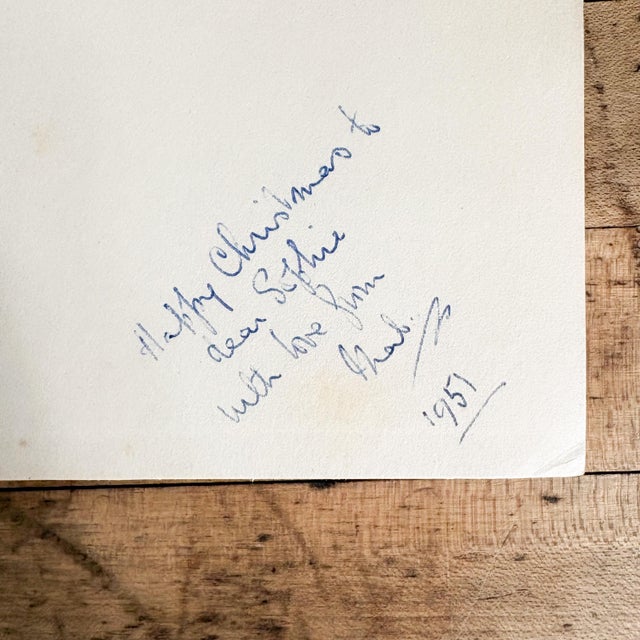 Happy Christmas to
dear Sophie
with love from
1951